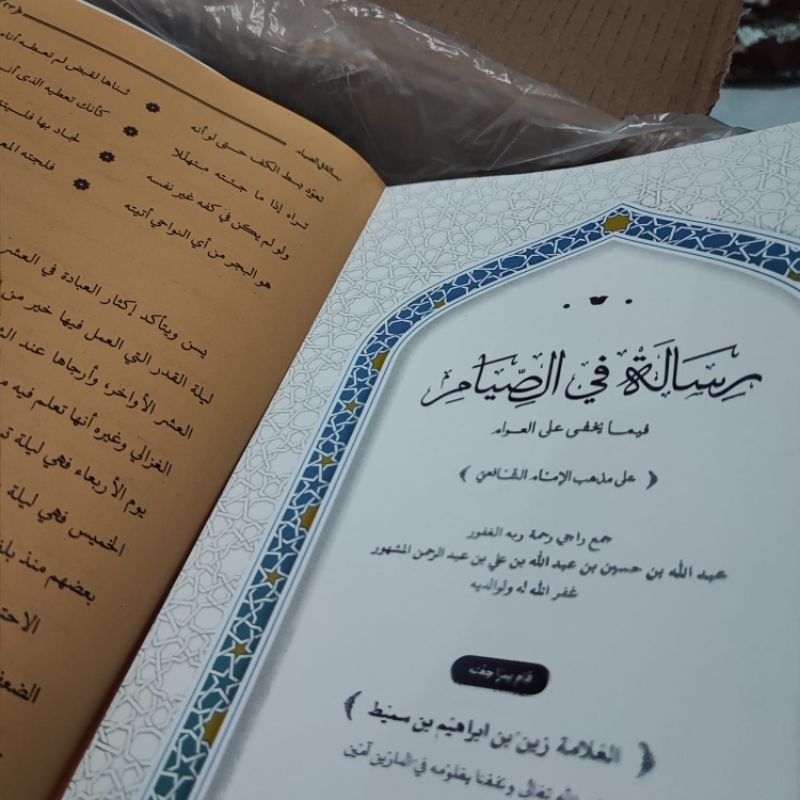 رسالة في الصيام
فيما يخفى على العوام
على مذهب الإمام الشافعي
جمع راجي رحمة ربه الغفور
عبد الله بن حسين بن عبد الله بن علي بن عبد الرحمن المشهور
غفر الله له ولوالديه
قام بمراجعته
العلامة زين بن ابراهيم بن سميط
الله تعالى ونفعنا بعلومه في الدارين آمين
رسالة في الصيام
تعود بسط الكف حتى لو أنه ثناها لقبض لم تطعه أنامله
تراه إذا ما جئته متهللا كأنك تعطيه الذي
ولو لم يكن في كفه غير نفسه لجاد بها فليتق
هو البحر من أي النواحي أتيته فلجته
يسن ويتأكد إكثار العبادة في العشر
ليلة القدر التي العمل فيها خير من
العشر الأواخر، وأرجاها عند
الغزالي وغيره أنها تعلم فيه
يوم الأربعاء فهي ليلة
الخميس فهي ليلة
بعضهم منذ